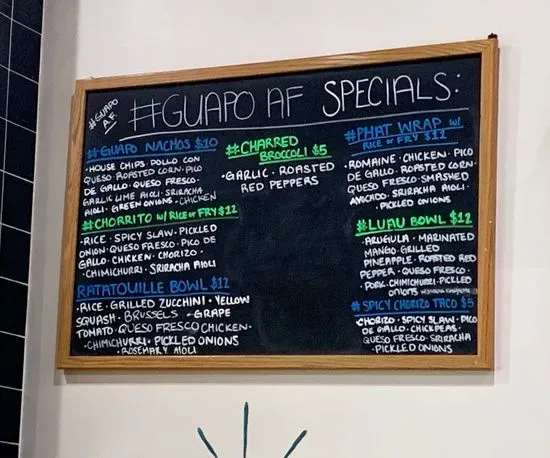 #GUAPO
AF
#GUAPO AF SPECIALS:
#GUAPO NACHOS $10
·HOUSE CHIPS·POLLO CON
QUESO·ROASTED CORN·PICO
DE GALLO·QUESO FRESCO·
GARLIC LIME AIOLI·SRIRACHA
AIOLI·GREEN ONIONS·CHICKEN
#CHORRITO W/ RICE or FRY $12
·RICE·SPICY SLAW·PICKLED
ONION·QUESO FRESCO·PICO DE
GALLO·CHICKEN·CHORIZO·
·CHIMICHURRI·SRIRACHA AIOLI
RATATOUILLE BOWL $12
·RICE·GRILLED ZUCCHINI·YELLOW
SQUASH·BRUSSELS·GRAPE
TOMATO·QUESO FRESCO CHICKEN·
·CHIMICHURRI·PICKLED ONIONS
·ROSEMARY AIOLI
#CHARRED
BROCCOLI $5
·GARLIC·ROASTED
RED PEPPERS
#PHAT WRAP W/
RICE or FRY $11
·ROMAINE·CHICKEN·PICO
DE GALLO·ROASTED CORN·
QUESO FRESCO·SMASHED
AVOCADO·SRIRACHA AIOLI·
·PICKLED ONIONS
#LUAU BOWL $12
·ARUGULA·MARINATED
MANGO·GRILLED
PINEAPPLE·ROASTED RED
PEPPER·QUESO FRESCO·
·PORK·CHIMICHURRI·PICKLED
ONIONS
#SPICY CHORIZO TACO $5
CHORIZO·SPICY SLAW·PICO
DE GALLO·CHICKPEAS·
QUESO FRESCO·SRIRACHA
·PICKLED ONIONS